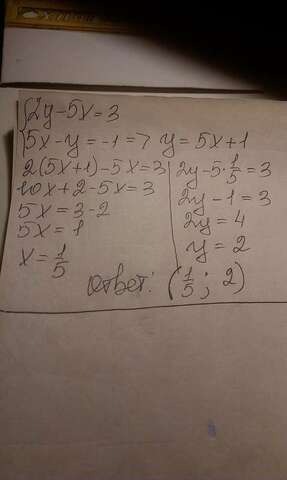 {2y-5x=3
{5x-y=-1=7 y=5x+1
2(5x+1)-5x=3
10x+2-5x=3
5x=3-2
5x=1
x=1/5
2y-5·1/5=3
2y-1=3
2y=4
y=2
Ответ: (1/5; 2)